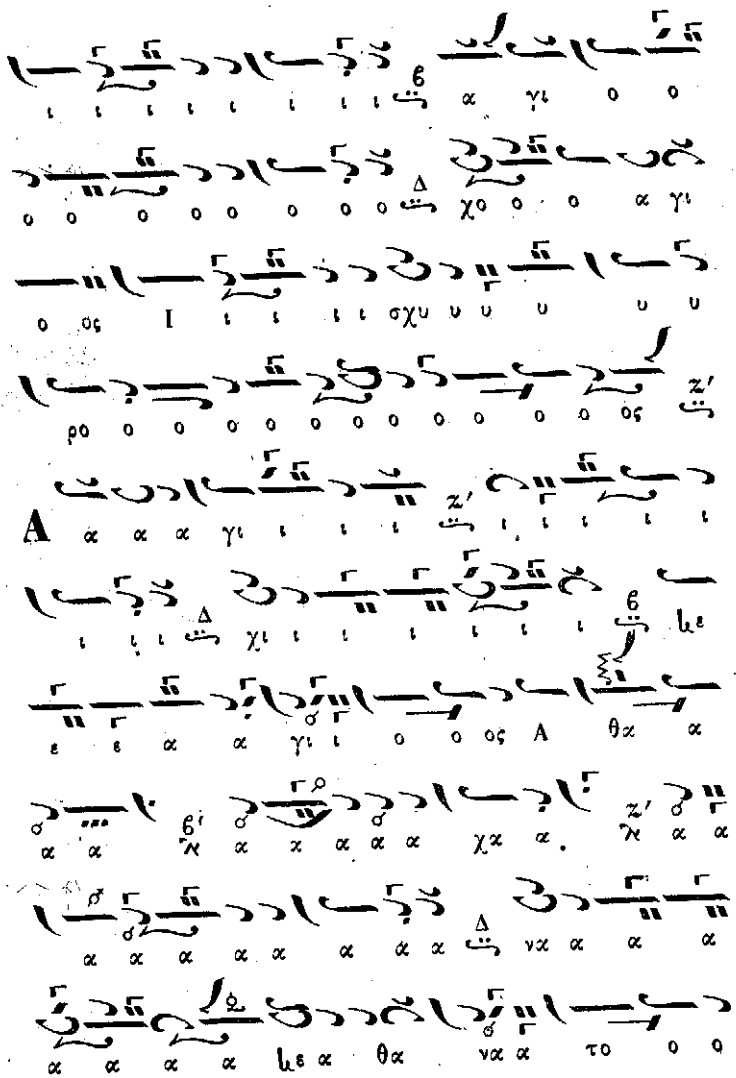 ι ι ι ι ι ι ι ι ϐ α γι ο ο
ο ο ο ο ο ο ο ο Δ χο ο ο α γι
ο ος Ι ι ι ι ι σχυ υ υ υ υ υ
ρο ο ο ο ο ο ο ο ο ο ο ο ος Ζ'
Α α α α γι ι ι ι Ζ' ι ι ι ι ι
ι ι ι Δ χι ι ι ι ι ι ι ϐ κε
ε ε α α γι ι ο ο ος Α θα α
α α ϐ' α α α α α χα α Ζ' α α
α α α α α α α α Δ να α α α
α α α α κε α θα να α το ο ο